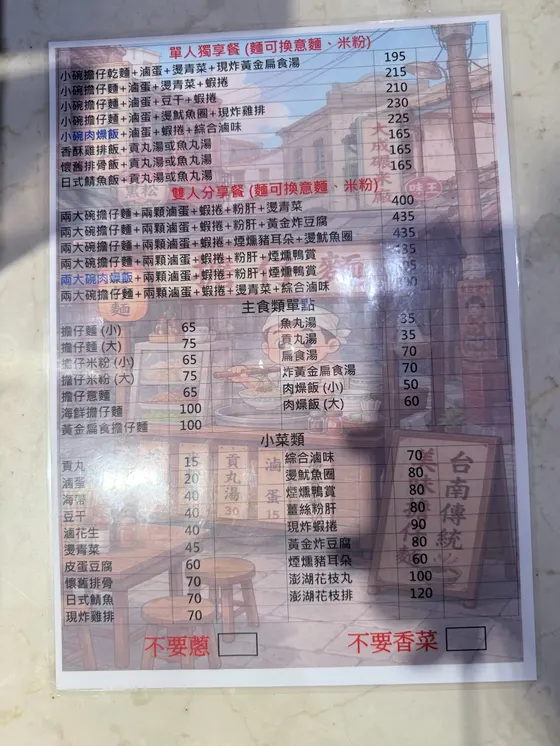 單人獨享餐 (麵可換意麵、米粉)
小碗擔仔乾麵+滷蛋+燙青菜+現炸黃金扁食湯 195
小碗擔仔麵+滷蛋+燙青菜+蝦捲 215
小碗擔仔麵+滷蛋+豆干+蝦捲 210
小碗擔仔麵+滷蛋+燙魷魚圈+現炸雞排 230
小碗肉燥飯+滷蛋+蝦捲+綜合滷味 225
香酥雞排飯+貢丸湯或魚丸湯 165
懷舊排骨飯+貢丸湯或魚丸湯 165
日式鯖魚飯+貢丸湯或魚丸湯 165
雙人分享餐 (麵可換意麵、米粉)
兩大碗擔仔麵+兩顆滷蛋+蝦捲+粉肝+燙青菜 400
兩大碗擔仔麵+兩顆滷蛋+蝦捲+粉肝+黃金炸豆腐 435
兩大碗擔仔麵+兩顆滷蛋+蝦捲+煙燻豬耳朵+燙魷魚圈 435
兩大碗擔仔麵+兩顆滷蛋+蝦捲+粉肝+煙燻鴨賞
兩大碗肉燥飯+兩顆滷蛋+蝦捲+粉肝+煙燻鴨賞
兩大碗擔仔麵+兩顆滷蛋+蝦捲+燙青菜+綜合滷味
主食類單點
擔仔麵 (小) 65
擔仔麵 (大) 75
擔仔米粉 (小) 65
擔仔米粉 (大) 75
擔仔意麵 65
海鮮擔仔麵 100
黃金扁食擔仔麵 100
魚丸湯 35
貢丸湯 35
扁食湯 70
炸黃金扁食湯 70
肉燥飯 (小) 50
肉燥飯 (大) 60
小菜類
貢丸 15
滷蛋 20
海帶 40
豆干 40
滷花生 40
燙青菜 45
皮蛋豆腐 60
懷舊排骨 70
日式鯖魚 70
現炸雞排 70
綜合滷味 70
燙魷魚圈 80
煙燻鴨賞 80
薑絲粉肝 80
現炸蝦捲 90
黃金炸豆腐 80
煙燻豬耳朵 60
澎湖花枝丸 100
澎湖花枝排 120
不要蔥
不要香菜
味王
麵
麵
貢丸湯 30
滷蛋 15
台南傳統